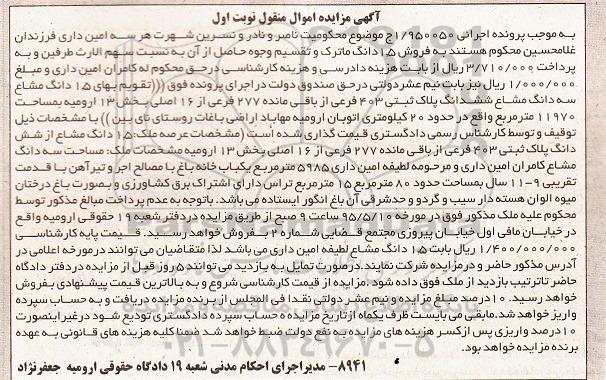 آگهی مزایده اموال منقول نوبت اول
به موجب پرونده اجرائی ۱/۹۵۰۰۵۰ج موضوع محکومیت ناصر و نادر و نسرین شهرت هر سه امین داری فرزندان
غلامحسین محکوم هستند به فروش ۱.۵ دانگ ماترک و تقسیم وجوه حاصل از آن به نسبت سهم الارث طرفین و به
پرداخت ۳/۷۱۰/۰۰۰ ریال از بابت هزینه دادرسی و هزینه کارشناسی در حق محکوم له کامران امین داری و مبلغ
۱/۰۰۰/۰۰۰ ریال نیز بابت نیم عشر دولتی در حق صندوق دولت در اجرای پرونده فوق (((تقویم بهای ۱.۵ دانگ مشاع
سه دانگ مشاع ششدانگ پلاک ثبتی ۴۰۳ فرعی از باقی مانده ۲۷۷ فرعی از ۱۶ اصلی بخش ۱۳ ارومیه بمساحت
۱۱۹۷۰ مترمربع واقع در حدود ۲۰ کیلومتری اتوبان ارومیه مهاباد اراضی باغات روستای نای بین )) با مشخصات ذیل
توقیف و توسط کارشناس رسمی دادگستری قیمت گذاری شده است (مشخصات عرصه ملک: ۱.۵ دانگ مشاع از شش
دانگ پلاک ثبتی ۴۰۳ فرعی از باقی مانده ۲۷۷ فرعی از ۱۶ اصلی بخش ۱۳ ارومیه مشخصات ملک: مساحت سه دانگ
مشاع کامران امین داری و مرحومه لطیفه امین داری ۵۹۸۵ مترمربع یکباب خانه باغ با مصالح اجر و تیرآهن با قدمت
تقریبی ۹-۱۱ سال بمساحت حدود ۸۰ مترمربع ۱۵ مترمربع تراس دارای اشتراک برق کشاورزی و بصورت باغ درختان
میوه الوان هسته دار سیب و گردو و حدشرقی آن باغ انگور ایستاده می باشد. باتوجه به عدم پرداخت مبالغ مذکور توسط
محکوم علیه ملک مذکور فوق در مورخه ۹۵/۵/۱۶ ساعت ۹ صبح از طریق مزایده در دفتر شعبه ۱۹ حقوقی ارومیه واقع
در خیابان مافی اول خیابان پیروزی مجتمع قضایی شماره ۲ بفروش خواهد رسید. قیمت پایه کارشناسی
۱/۴۰۰/۰۰۰/۰۰۰ ریال بابت ۱.۵ دانگ مشاع لطیفه امین داری می باشد لذا متقاضیان می توانند در مورخه اعلامی در
آدرس مذکور حاضر و در مزایده شرکت نمایند. در صورت تمایل به بازدید می توانند ۵ روز قبل از مزایده در دفتر دادگاه
حاضر تا ترتیب بازدید از ملک فوق داده شود. مزایده از قیمت کارشناسی شروع و به بالاترین قیمت پیشنهادی بفروش
خواهد رسید. ۱۰ درصد مبلغ مزایده و نیم عشر دولتی نقدا فی المجلس از برنده مزایده دریافت و به حساب سپرده
واریز خواهد شد. مابقی می بایست ظرف یکماه از تاریخ مزایده به حساب سپرده دادگستری تودیع شود در غیر اینصورت
۱۰ درصد واریزی پس از کسر هزینه های مزایده به نفع دولت ضبط خواهد شد ضمنا کلیه هزینه های قانونی به عهده
برنده مزایده خواهد بود.
۸۹۴۱- مدیر اجرای احکام مدنی شعبه ۱۹ دادگاه حقوقی ارومیه جعفرنژاد
۰۲۱-۸۸۳۴۹۶۷۰-۵